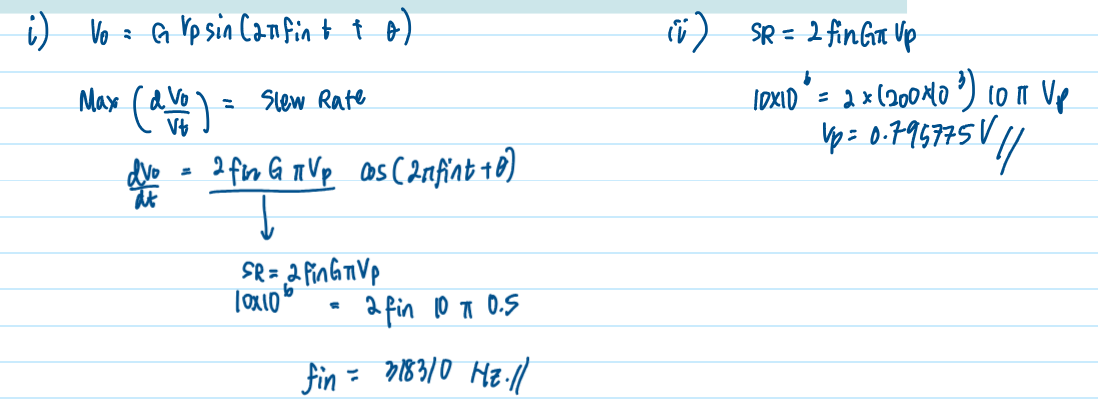 i) V₀ = G Vp sin(2πfin t + θ)
Max (dV₀/Vt) = Slew Rate
dV₀/dt = 2 fin G π Vp cos(2πfin t + θ)
SR = 2 fin G π Vp
10x10⁶ = 2 fin 10 π 0.5
fin = 318310 Hz.//
ii) SR = 2 fin G π Vp
10x10⁶ = 2 x (200x10³) 10 π Vp
Vp = 0.795775 V //